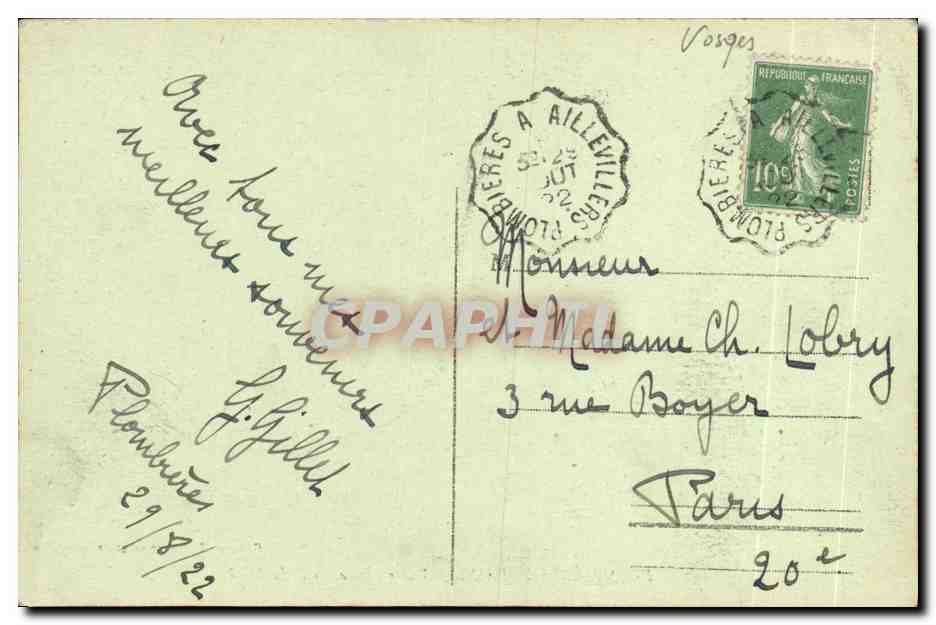 Vosges
REPUBLIQUE FRANÇAISE
10c
POSTES
PLOMBIERES A AILLEVILLERS
PLOMBIERES A AILLEVILLERS
Avec tous mes
meilleurs souvenirs
G. Gillet
Plombières
29/8/22
Monsieur
et Madame Ch. Lobry
3 rue Boyer
Paris
20e
CPAPHIL